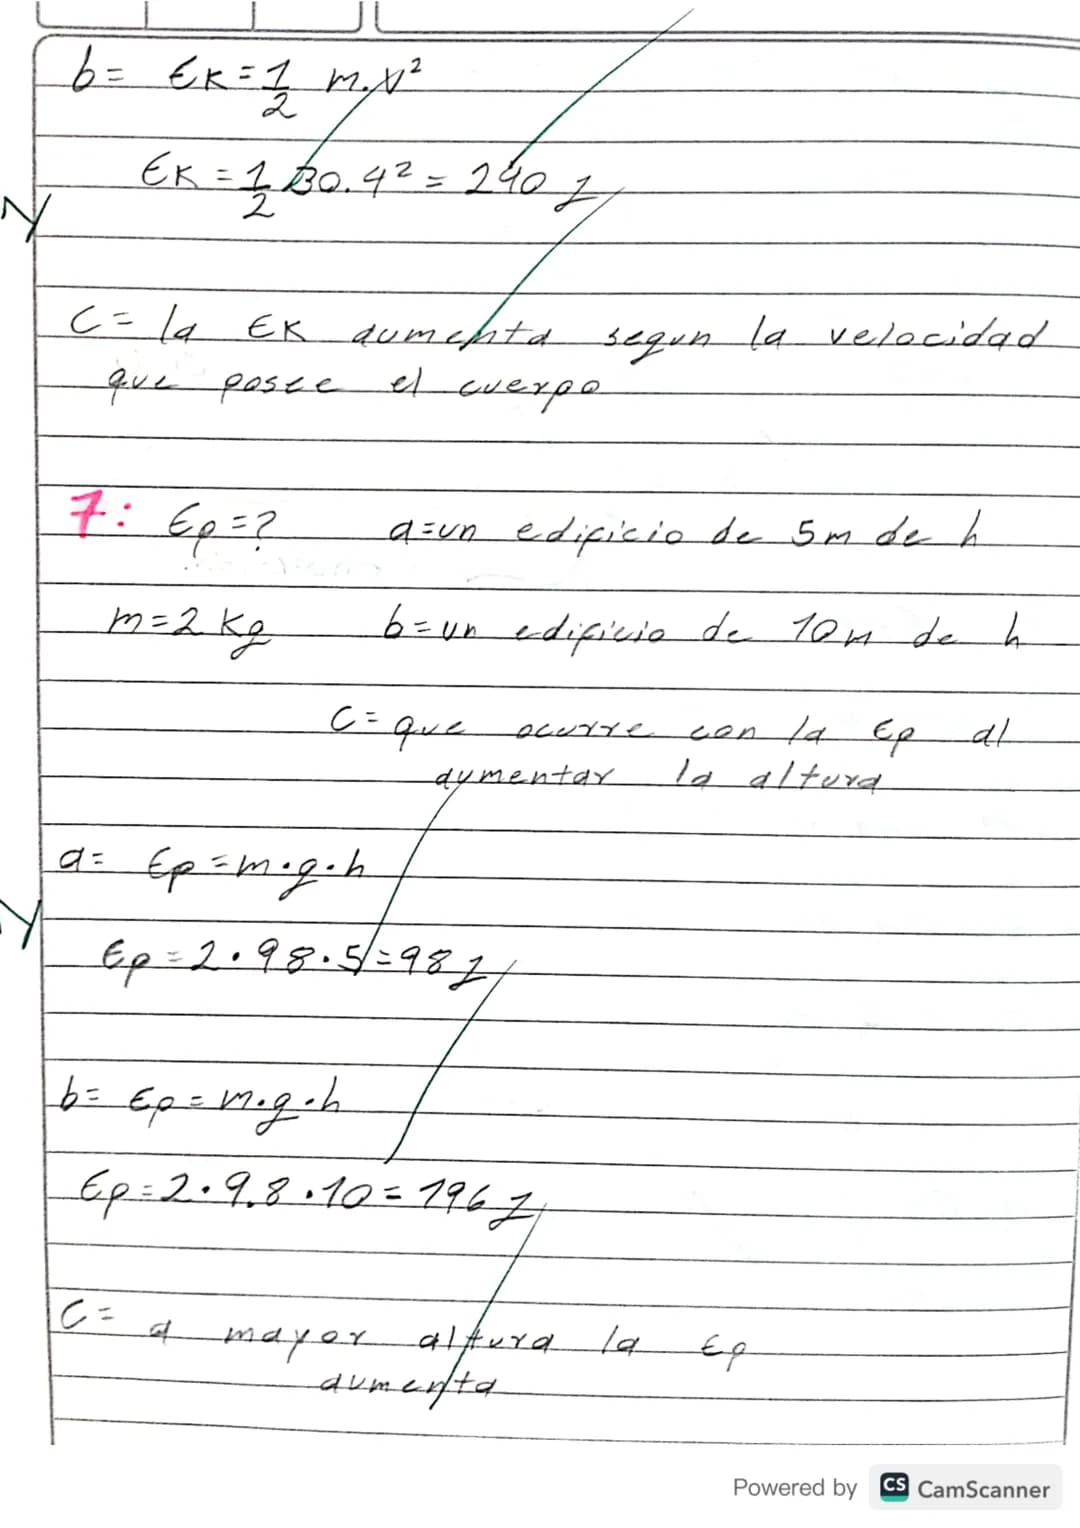 b= EK=1/2 m.V²
EK=1/2 30.4²=240 J
C= la EK aumenta segun la velocidad
que posee el cuerpo
7: Ep=? a=un edificio de 5m de h
m=2 Kg b=un edificio de 10m de h
C= que ocurre con la Ep al
aumentar la altura
a= Ep=m.g.h
Ep=2.98.5=98 J
b= Ep=m.g.h
Ep=2.9,8.10=196 J
C= a mayor altura la Ep
aumenta
Powered by CS CamScanner